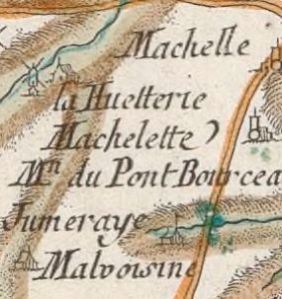 Machelle
la Huetterie
Machelette
Mⁿ du Pont Bourcea
Jumeraye
Malvoisine